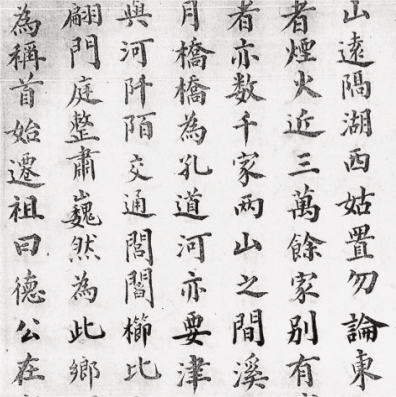 山遠隔湖西姑置勿論東
者煙火近三萬餘家別有
者亦数千家两山之間溪
月橋橋為孔道河亦要津
與河阡陌交通閭閻櫛比
翩門庭整肅巍然為此鄉
為稱首始遷祖曰德公在